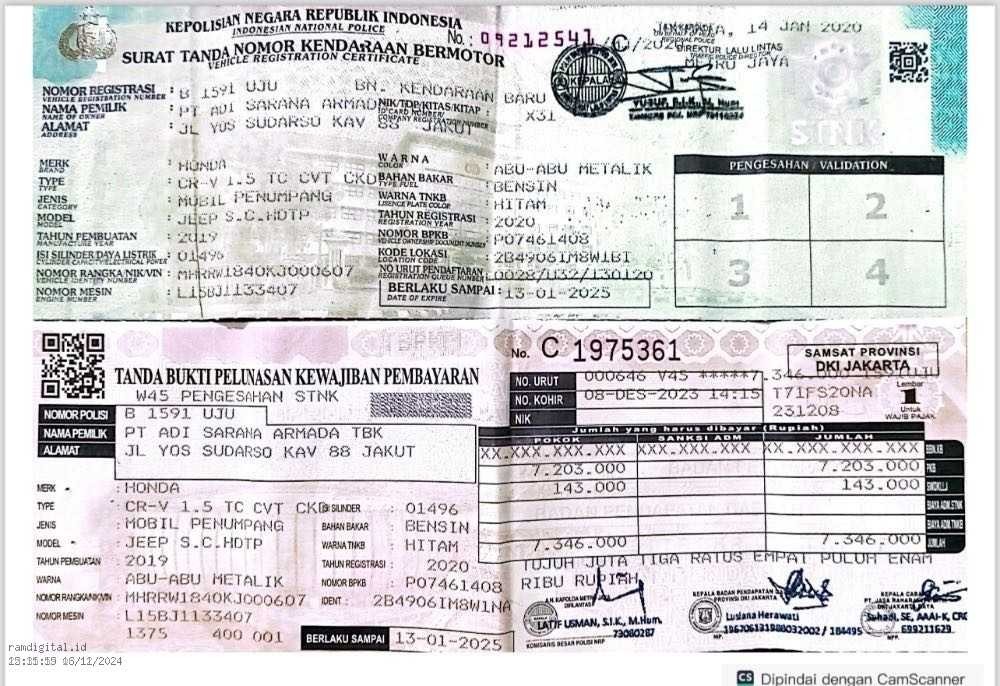 KEPOLISIAN NEGARA REPUBLIK INDONESIA
INDONESIAN NATIONAL POLICE
SURAT TANDA NOMOR KENDARAAN BERMOTOR
VEHICLE REGISTRATION CERTIFICATE
No.: 09212541
14 JAN 2020
DIREKTUR LALU LINTAS
METRO JAYA
KEPALA
NOMOR REGISTRASI : B 1591 UJU BN. KENDARAAN BARU
VEHICLE REGISTRATION NUMBER
NAMA PEMILIK : PT ADI SARANA ARMAD NIK/TDP/KITAS/KITAP : X31
NAME OF OWNER
COMPANY REGISTRATION NUMBER
ALAMAT : JL YOS SUDARSO KAV 88 JAKUT
ADDRESS
STNK
MERK : HONDA
BRAND
TYPE : CR-V 1.5 TC CVT CKD
TYPE
JENIS : MOBIL PENUMPANG
CATEGORY
MODEL : JEEP S.C.HDTP
MODEL
TAHUN PEMBUATAN : 2019
MANUFACTURE YEAR
ISI SILINDER/DAYA LISTRIK : 01496
CYLINDER CAPACITY/ELECTRICAL POWER
NOMOR RANGKA/NIK/VIN : MHRRW1840KJ000607
VEHICLE IDENTITY NUMBER
NOMOR MESIN : L15BJ1133407
ENGINE NUMBER
WARNA : ABU-ABU METALIK
COLOR
BAHAN BAKAR : BENSIN
TYPE FUEL
WARNA TNKB : HITAM
LISENCE PLATE COLOR
TAHUN REGISTRASI : 2020
REGISTRATION YEAR
NOMOR BPKB : P07461408
VEHICLE OWNERSHIP DOCUMENT NUMBER
KODE LOKASI : 2B4906IM8W1BT
LOCATION CODE
NO URUT PENDAFTARAN : 0028/U32/130120
REGISTRATION QUEUE NUMBER
BERLAKU SAMPAI : 13-01-2025
DATE OF EXPIRE
PENGESAHAN / VALIDATION
1 2
3 4
No. C 1975361
SAMSAT PROVINSI
DKI JAKARTA
TANDA BUKTI PELUNASAN KEWAJIBAN PEMBAYARAN
W45 PENGESAHAN STNK
NO. URUT 000646 V45 *****7.346
NO. KOHIR 08-DES-2023 14:15 T71FS20NA
NIK 231208
Lembar
1
Untuk
WAJIB PAJAK
NOMOR POLISI B 1591 UJU
NAMA PEMILIK PT ADI SARANA ARMADA TBK
ALAMAT JL YOS SUDARSO KAV 88 JAKUT
Jumlah yang harus dibayar (Rupiah)
POKOK SANKSI ADM JUMLAH
XX.XXX.XXX.XXX XX.XXX.XXX.XXX XX.XXX.XXX.XXX BBN.KB
7.203.000 7.203.000 PKB
143.000 143.000 SWDKLLJ
BIAYA ADM.STNK
BIAYA ADM.TNKB
7.346.000 7.346.000 JUMLAH
TUJUH JUTA TIGA RATUS EMPAT PULUH ENAM
RIBU RUPIAH
MERK : HONDA
TYPE : CR-V 1.5 TC CVT CKD
JENIS : MOBIL PENUMPANG
MODEL : JEEP S.C.HDTP
TAHUN PEMBUATAN : 2019
WARNA : ABU-ABU METALIK
NOMOR RANGKA/NIK/VIN : MHRRW1840KJ000607
NOMOR MESIN : L15BJ1133407
1375 400 001
ISI SILINDER : 01496
BAHAN BAKAR : BENSIN
WARNA TNKB : HITAM
TAHUN REGISTRASI : 2020
NOMOR BPKB : P07461408
IDENT : 2B4906IM8W1NA
BERLAKU SAMPAI 13-01-2025
LATIF USMAN, S.I.K., M.Hum.
KOMISARIS BESAR POLISI NRP 73080287
KEPALA BADAN PENDAPATAN DAERAH
PROVINSI DKI JAKARTA
Lusiana Herawati
196706131988032002 / 184495
Suhadi, SE, AAAI-K, CRG
699211629
ramdigital.id
16/12/2024
CS Dipindai dengan CamScanner